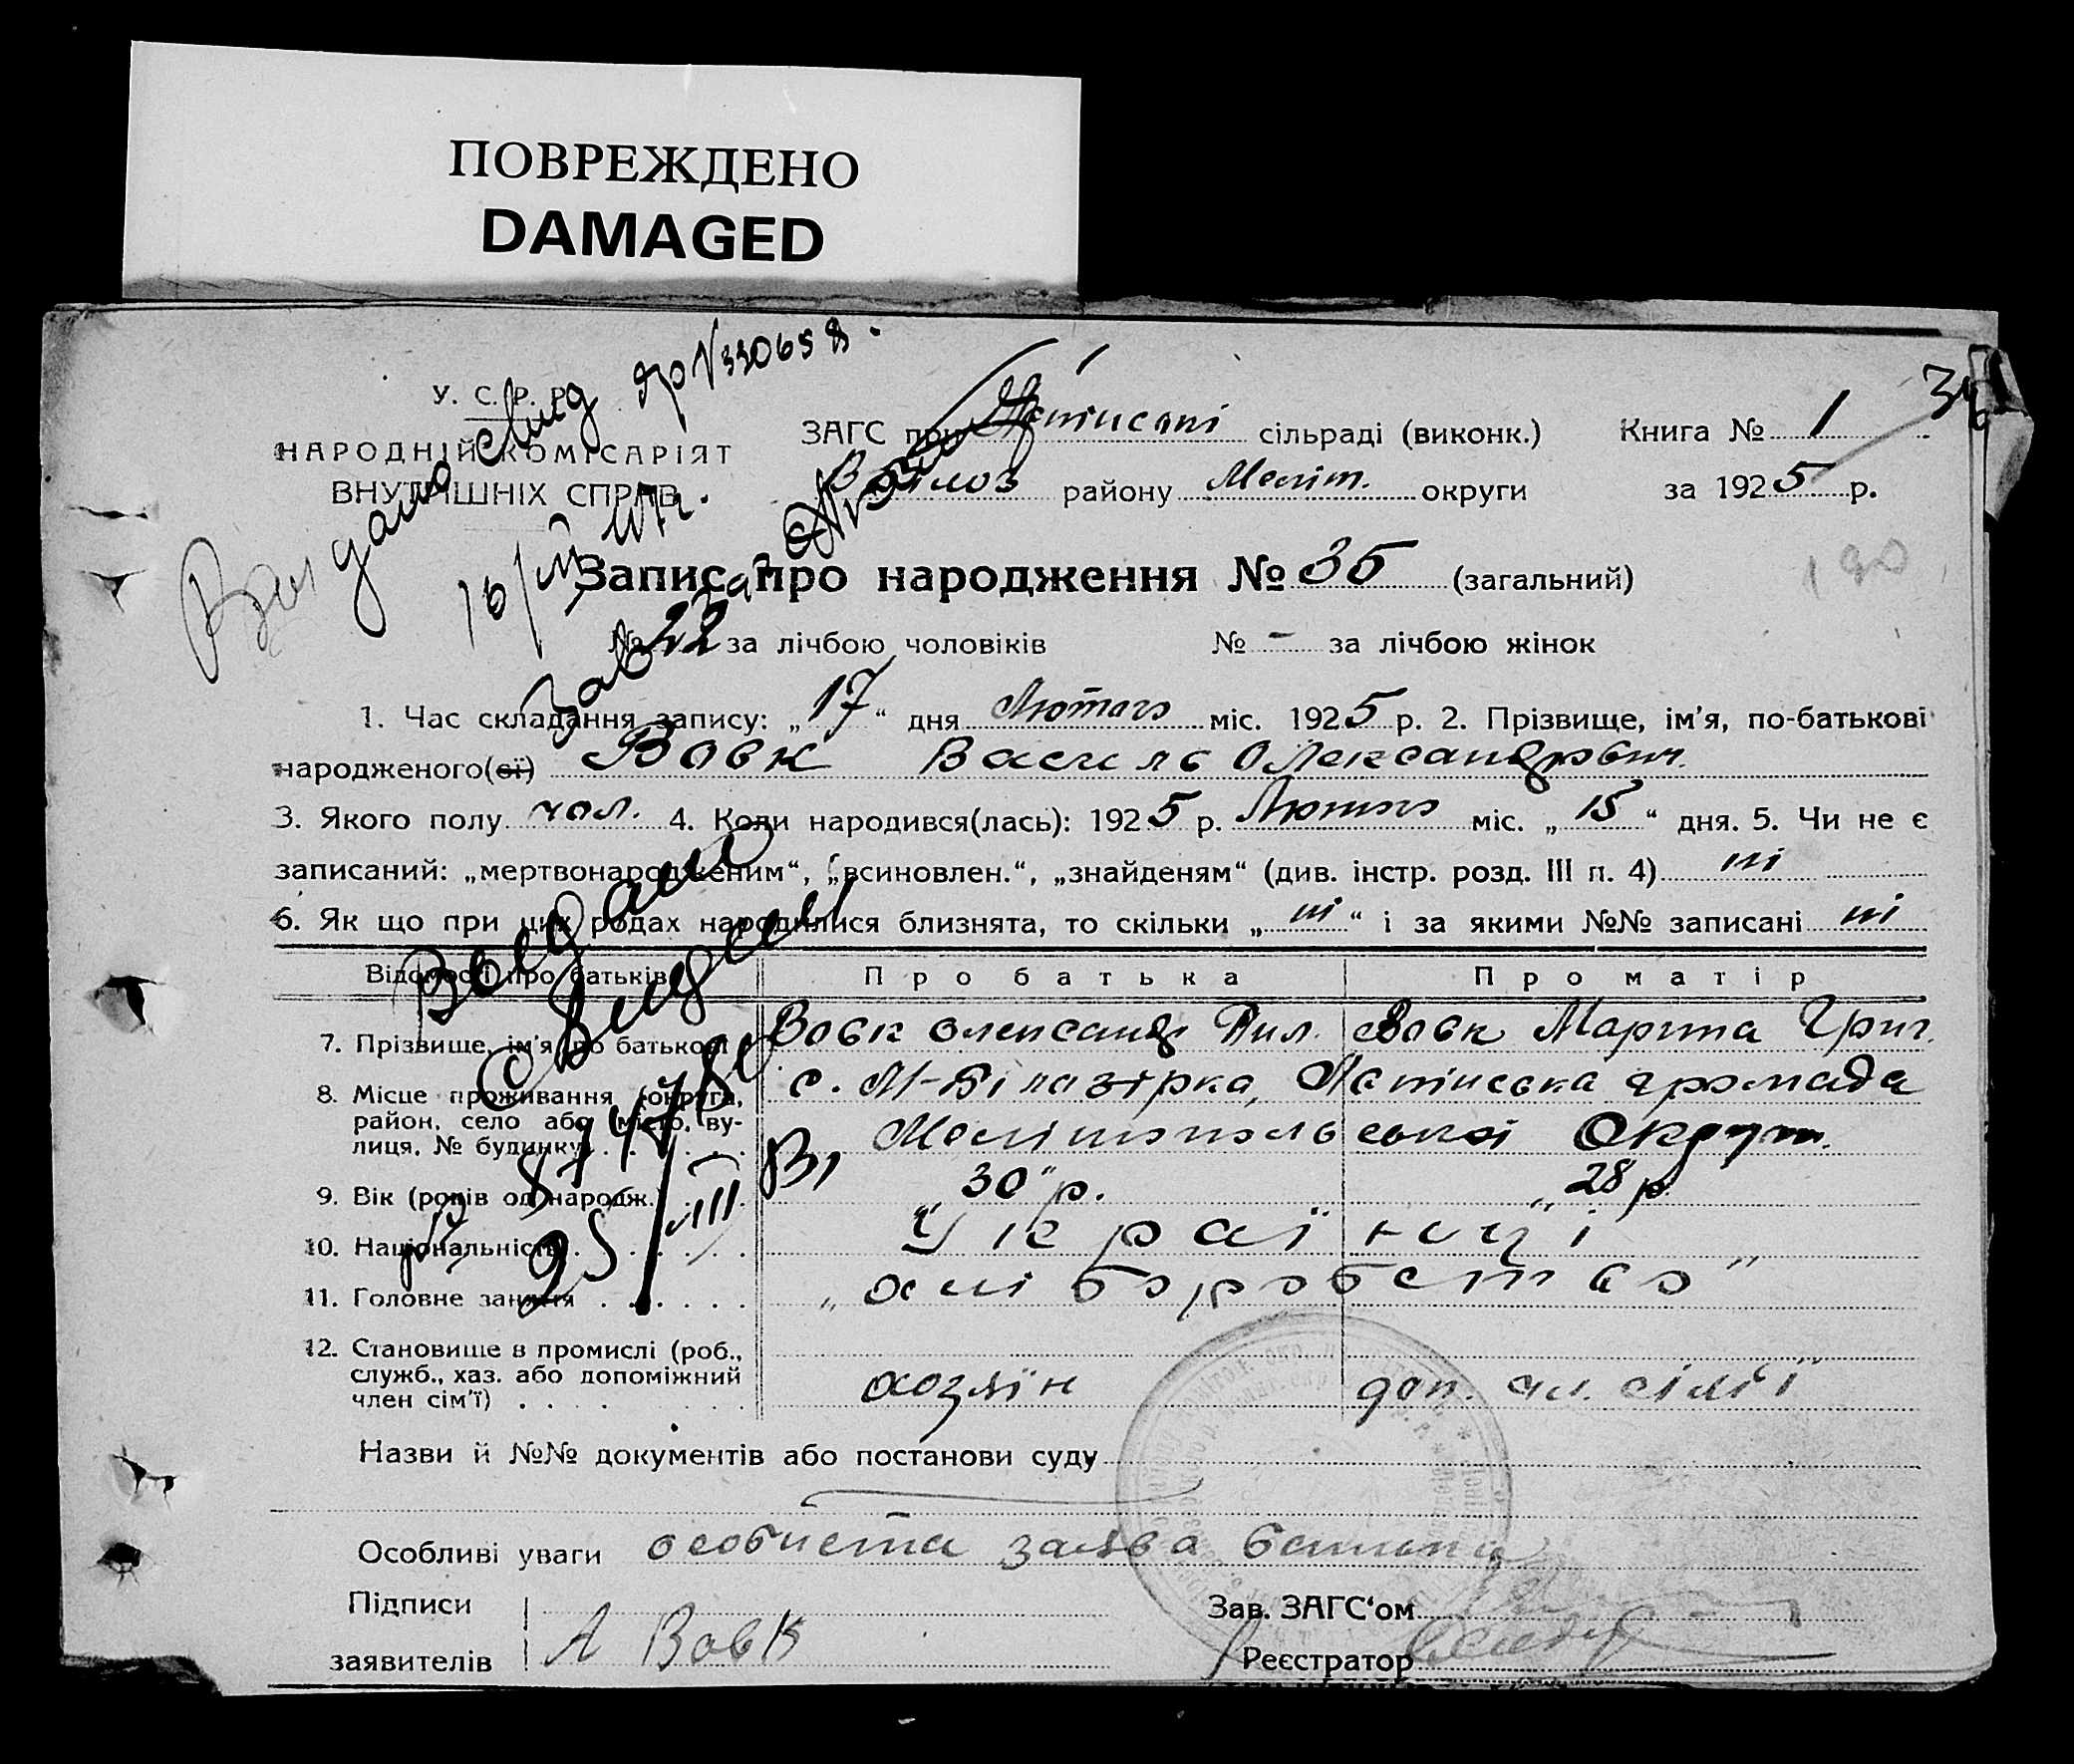 ПОВРЕЖДЕНО
DAMAGED
У. С. Р. Р.
НАРОДНІЙ КОМІСАРІЯТ
ВНУТРІШНІХ СПРАВ
ЗАГС при сільраді (виконк.)
району Меліт. округи
Книга № 1
за 1925 р.
Запис про народження № 35 (загальний)
190
№ 22 за лічбою чоловіків № - за лічбою жінок
1. Час складання запису: „17“ дня Лютого міс. 1925 р. 2. Прізвище, ім'я, по-батькові
народженого(ої) Вовк Василь Олександрович
3. Якого полу чол. 4. Коли народився(лась): 1925 р. Лютого міс. „15“ дня. 5. Чи не є
записаний: „мертвонародженим“, „всиновлен.“, „знайденям“ (див. інстр. розд. III п. 4) ні
6. Як що при цих родах народилися близнята, то скільки „ні“ і за якими №№ записані ні
Відомості про батьків Про батька Про матір
7. Прізвище, ім'я по батькові Вовк Олександ Пил. Вовк Марта Григ.
8. Місце проживання (округа, район, село або місто, вулиця, № будинку) с. М-Білозірка, громада
Мелітопольської Округи.
9. Вік (років од народж.) „30“ р. „28 р.
10. Національність Українці
11. Головне заняття „хліборобство“
12. Становище в промислі (роб., служб., хаз. або допоміжний член сім'ї) хозяїн доп. чл. сімї
Назви й №№ документів або постанови суду
Особливі уваги особиста заява батька
Підписи
заявителів А Вовк
Зав. ЗАГС‘ом
Реєстратор
Видано
Видано